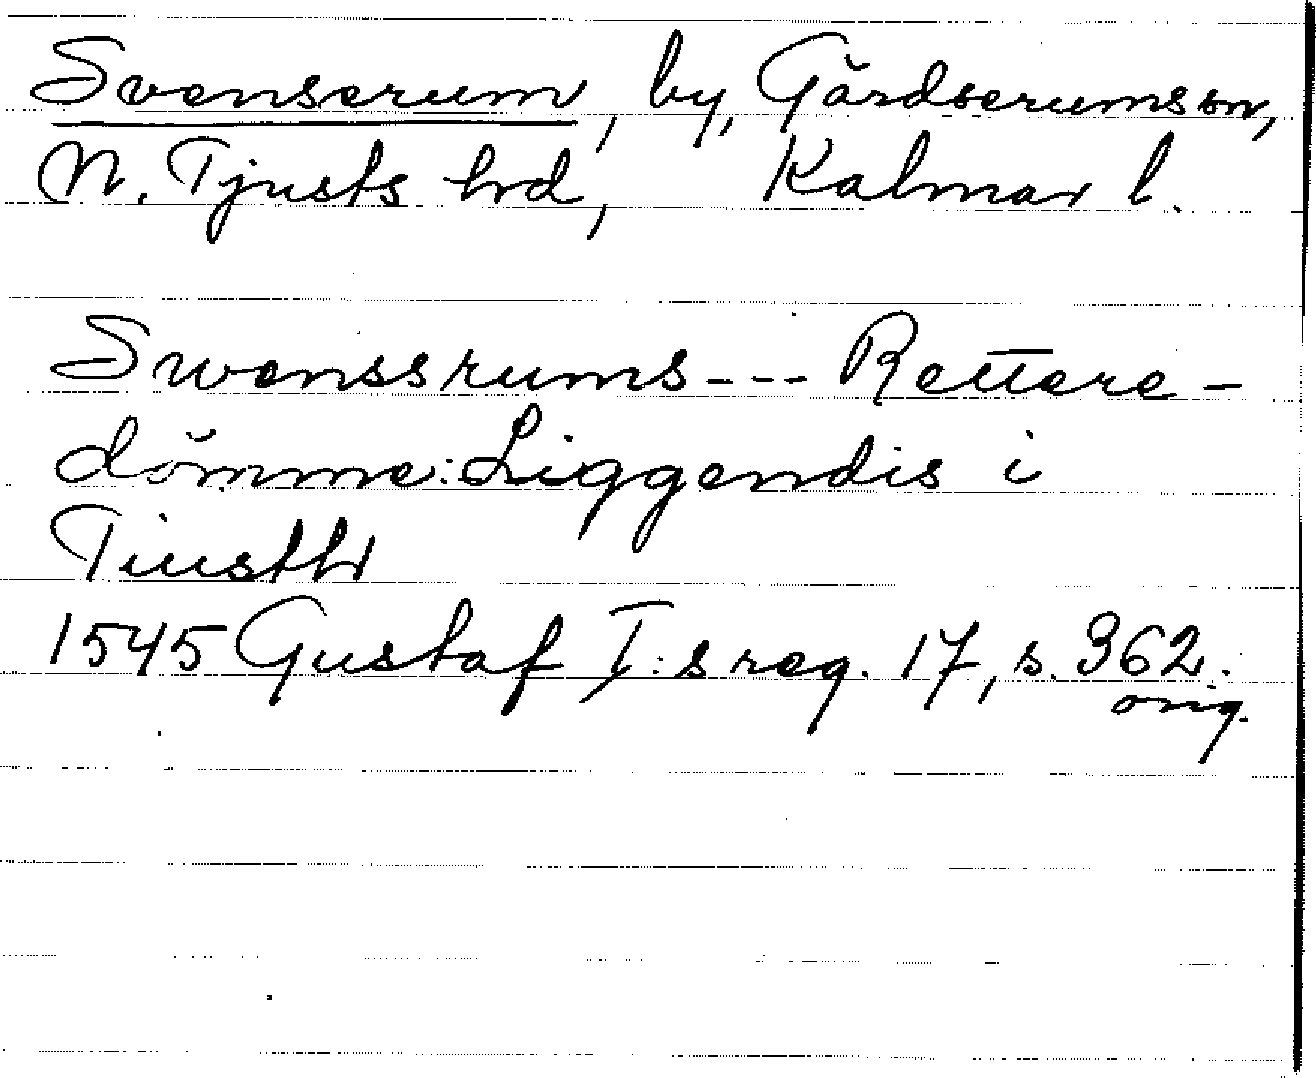 Svenserum, by, Gärdserums sn,
N. Tjusts hrd, Kalmar l.
Swenssrums --- Rettere-
dömme: Liggendis i
Tiusthr
1545 Gustaf I:s reg. 17, s. 362.
orig.